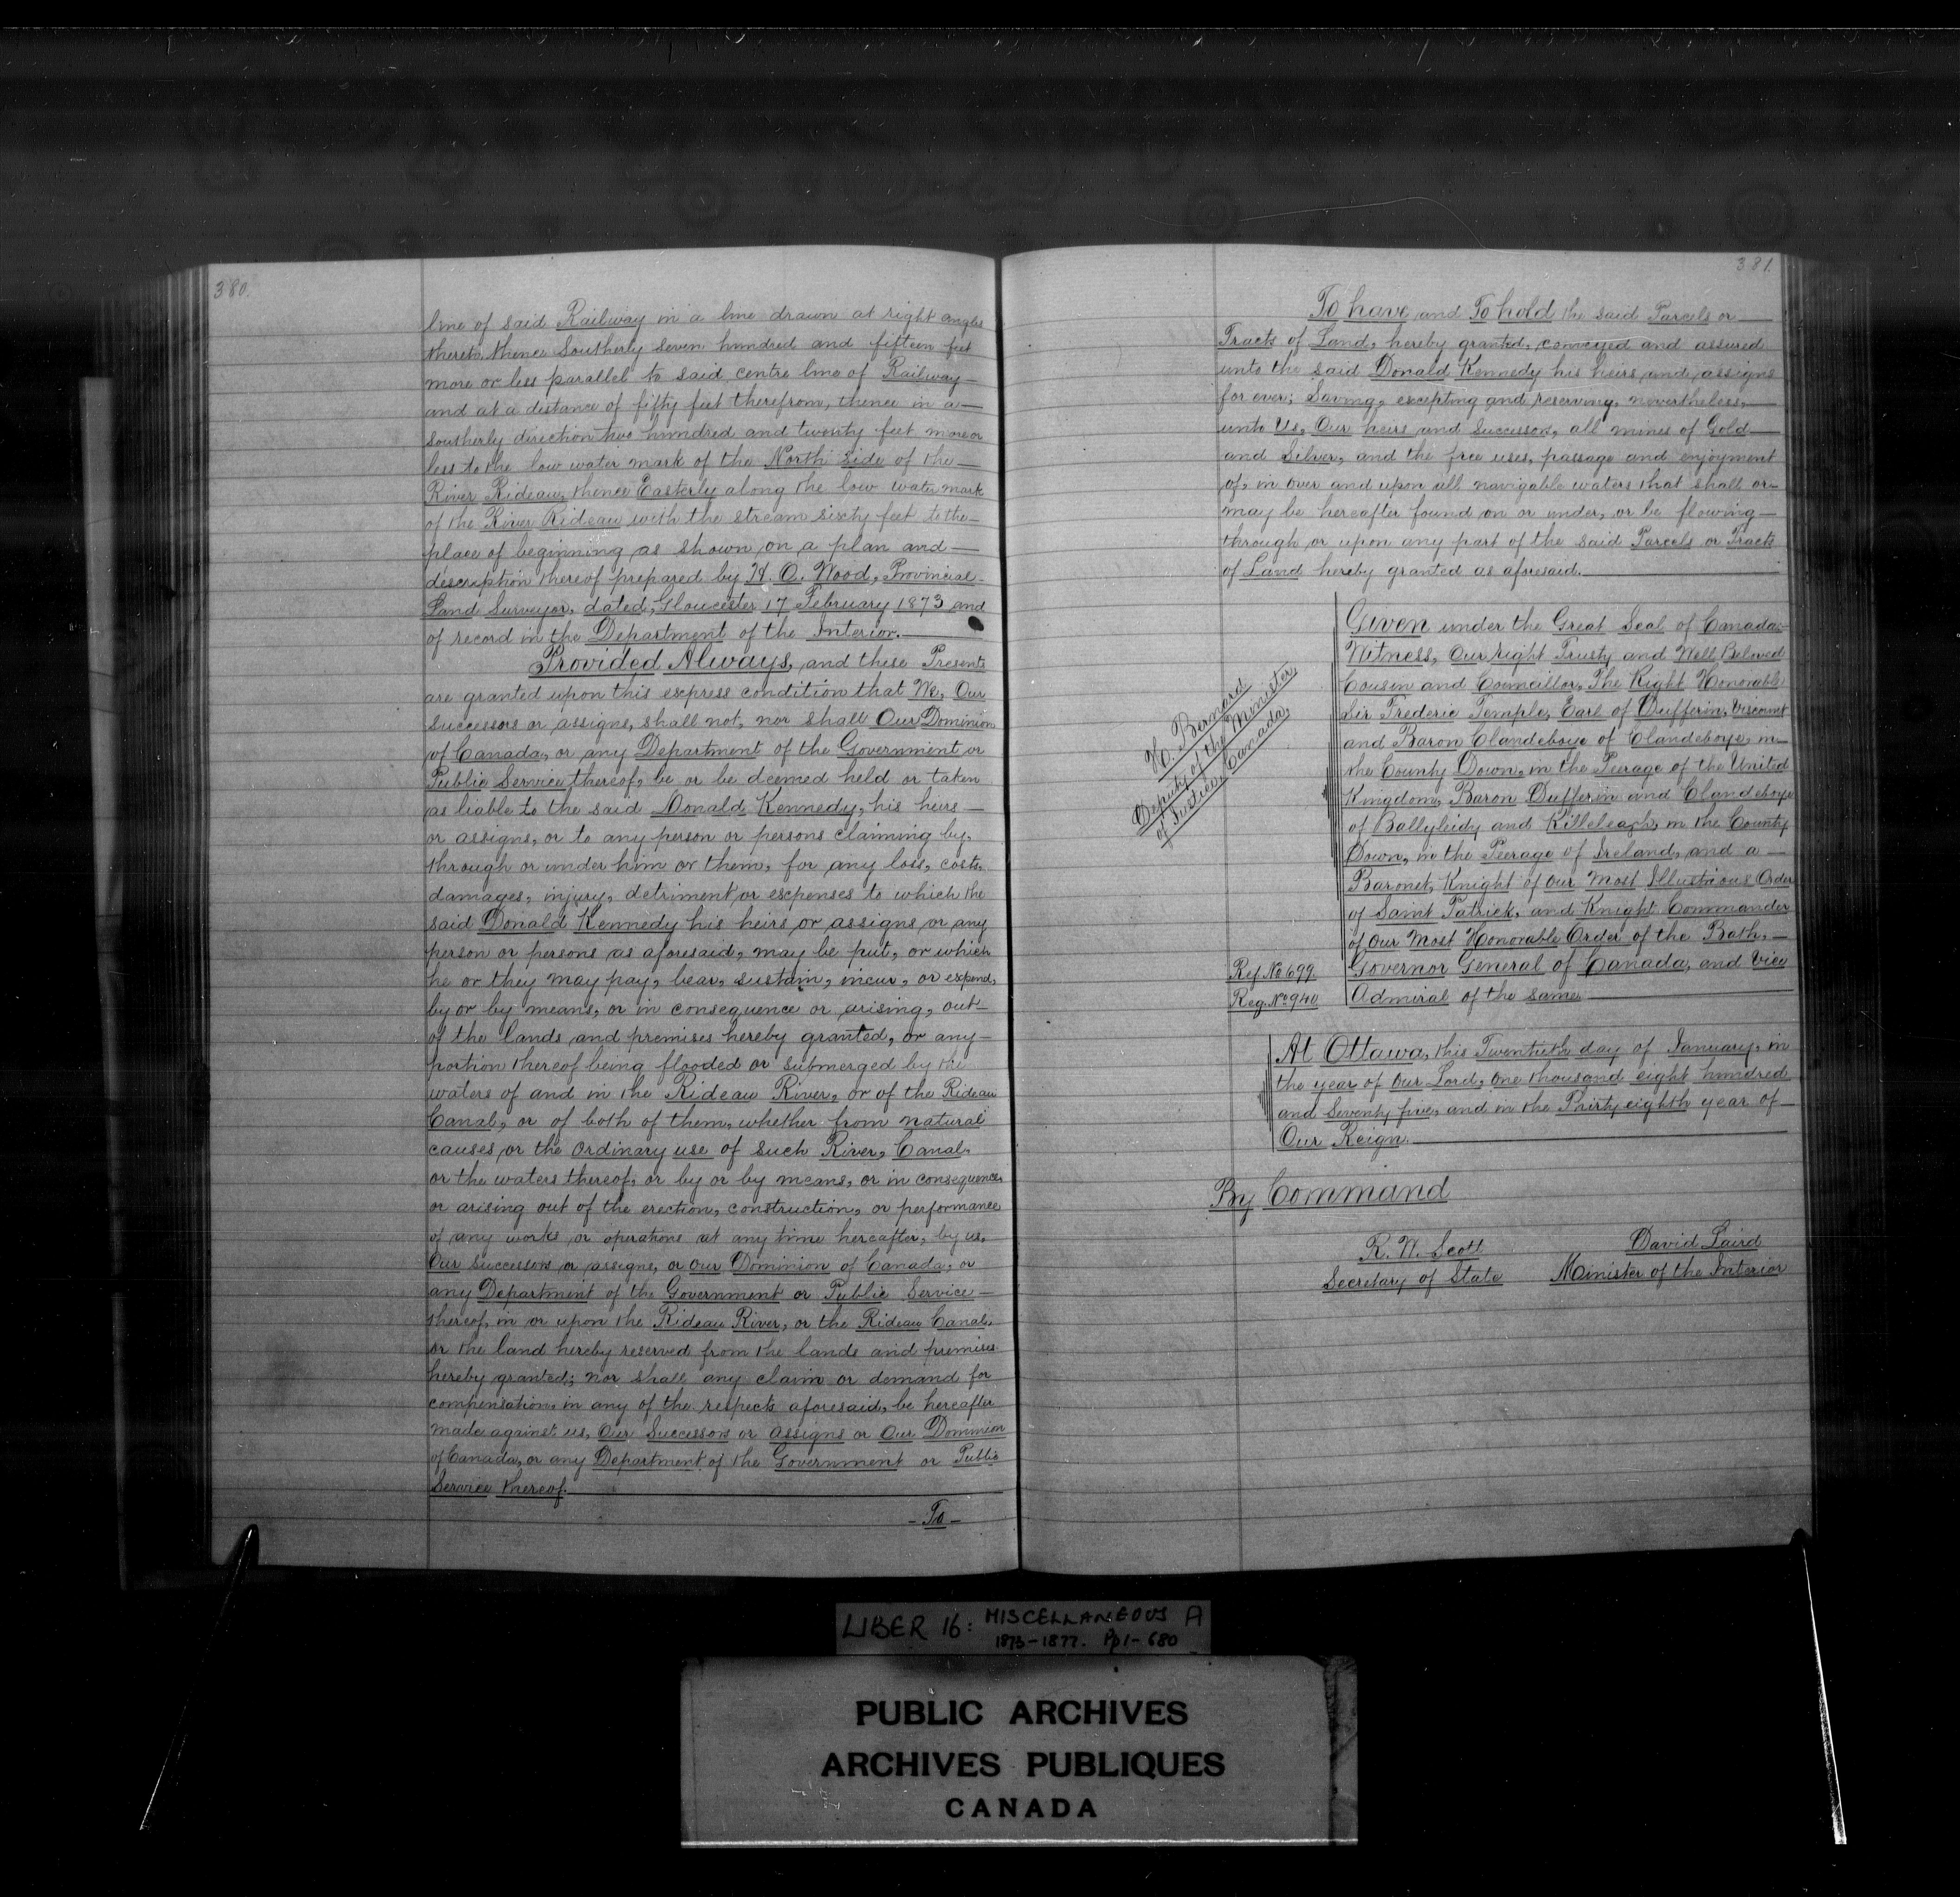 380.
line of said Railway in a line drawn at right angles
thereto, thence Southerly seven hundred and fifteen feet
more or less parallel to said centre line of Railway
and at a distance of fifty feet therefrom, thence in a
Southerly direction two hundred and twenty feet more or
less to the low water mark of the North Side of the
River Rideau, thence Easterly along the low water mark
of the River Rideau with the stream sixty feet to the
place of beginning as shown on a plan and
description thereof prepared by H. O. Wood, Provincial
Land Surveyor, dated, Gloucester 17 February 1873 and
of record in the Department of the Interior.
Provided Always, and these Presents
are granted upon this express condition that We, Our
Successors or assigns, shall not, nor shall Our Dominion
of Canada, or any Department of the Government or
Public Service thereof, be or be deemed held or taken
as liable to the said Donald Kennedy, his heirs
or assigns, or to any person or persons claiming by,
through or under him or them, for any loss, costs,
damages, injury, detriment or expenses to which the
said Donald Kennedy his heirs or assigns or any
person or persons as aforesaid, may be put, or which
he or they may pay, bear, sustain, incur, or expend,
by or by means, or in consequence or arising, out
of the lands and premises hereby granted, or any
portion thereof being flooded or submerged by the
waters of and in the Rideau River, or of the Rideau
Canal, or of both of them, whether from natural
causes or the ordinary use of such River, Canal,
or the waters thereof, or by or by means, or in consequence
or arising out of the erection, construction, or performance
of any works or operations at any time hereafter, by us,
Our Successors or assigns, or our Dominion of Canada, or
any Department of the Government or Public Service
thereof, in or upon the Rideau River, or the Rideau Canal,
or the land hereby reserved from the lands and premises
hereby granted; nor shall any claim or demand for
compensation, in any of the respects aforesaid, be hereafter
made against us, Our Successors or assigns or Our Dominion
of Canada, or any Department of the Government or Public
Service thereof.
- To -
381.
To have and To hold the said Parcels or
Tracts of Land, hereby granted, conveyed and assured
unto the said Donald Kennedy his heirs and assigns
for ever; Saving, excepting and reserving, nevertheless,
unto Us, Our heirs and Successors, all mines of Gold
and Silver, and the free uses, passage and enjoyment
of, in over and upon all navigable waters that shall or
may be hereafter found on or under, or be flowing
through or upon any part of the said Parcels or Tracts
of Land hereby granted as aforesaid.
H. Bernard
Deputy of the Minister
of Justice, Canada.
Given under the Great Seal of Canada:
Witness, Our right Trusty and Well Beloved
Cousin and Councillor, The Right Honorable
Sir Frederic Temple, Earl of Dufferin, Viscount
and Baron Clandeboye of Clandeboye, in
the County Down, in the Peerage of the United
Kingdom, Baron Dufferin and Clandeboye
of Ballyleidy and Killeleagh, in the County
Down, in the Peerage of Ireland, and a
Baronet, Knight of our Most Illustrious Order
of Saint Patrick, and Knight Commander
of Our Most Honorable Order of the Bath,
Governor General of Canada, and Vice
Admiral of the same
Ref. No 699.
Reg. No 940
At Ottawa, this Twentieth day of January, in
the year of Our Lord, one thousand eight hundred
and Seventy five, and in the Thirty eighth year of
Our Reign.
By Command
R. W. Scott
Secretary of State
David Laird
Minister of the Interior
LIBER 16: MISCELLANEOUS A
1873-1877. Pp 1-680
PUBLIC ARCHIVES
ARCHIVES PUBLIQUES
CANADA